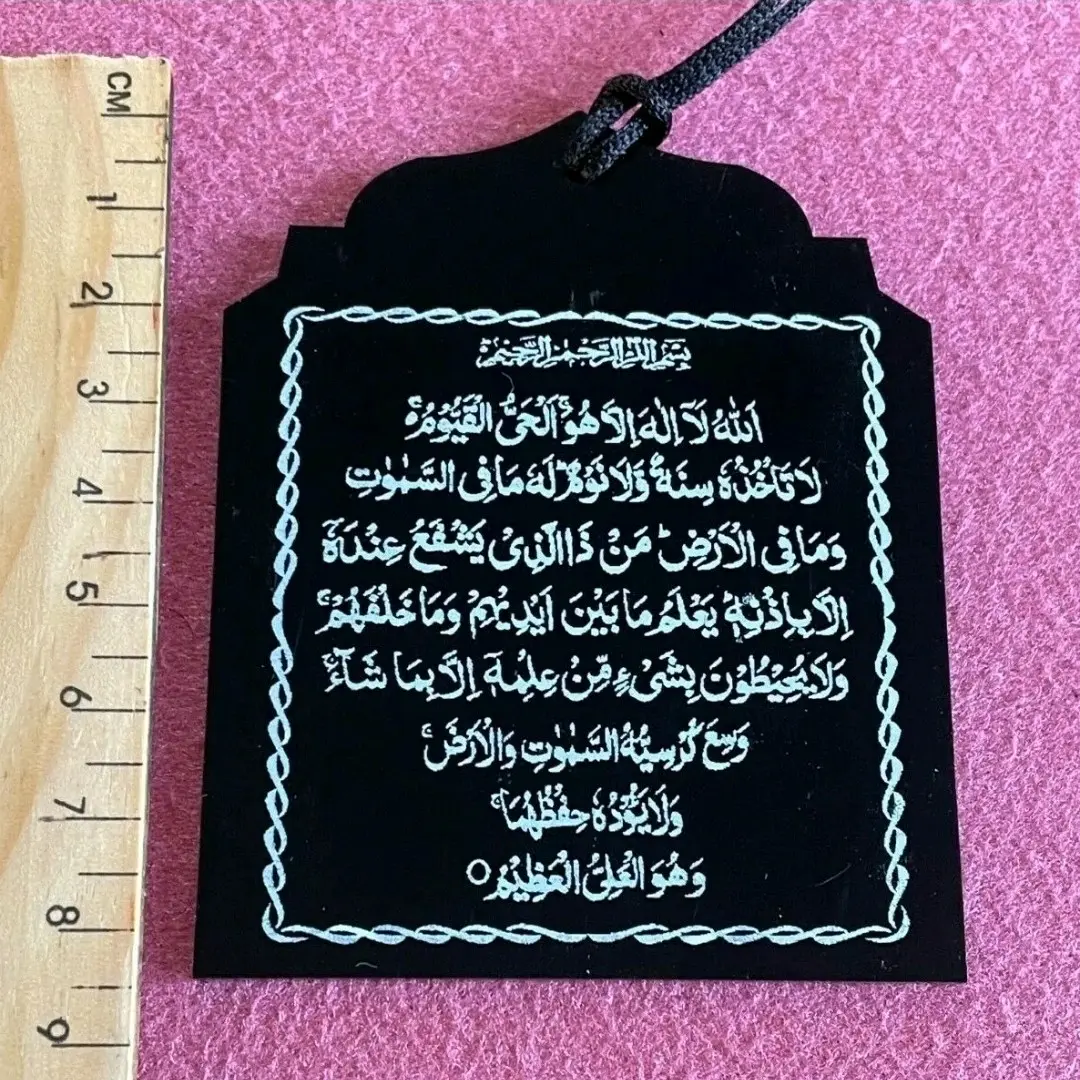 CM
1
2
3
4
5
6
7
8
9
بِسْمِ اللهِ الرَّحْمٰنِ الرَّحِيْمِ
اَللّٰهُ لَآ اِلٰهَ اِلَّا هُوَ ۚ اَلْحَيُّ الْقَيُّوْمُ ۚ
لَا تَاْخُذُهٗ سِنَةٌ وَّلَا نَوْمٌ ؕ لَهٗ مَا فِی السَّمٰوٰتِ
وَمَا فِی الْاَرْضِ ؕ مَنْ ذَا الَّذِیْ یَشْفَعُ عِنْدَهٗٓ
اِلَّا بِاِذْنِهٖ ؕ یَعْلَمُ مَا بَیْنَ اَیْدِیْهِمْ وَمَا خَلْفَهُمْ ۚ
وَلَا یُحِیْطُوْنَ بِشَیْءٍ مِّنْ عِلْمِهٖٓ اِلَّا بِمَا شَآءَ ۚ
وَسِعَ كُرْسِیُّهُ السَّمٰوٰتِ وَالْاَرْضَ ۚ
وَلَا یَـُٔوْدُهٗ حِفْظُهُمَا ۚ
وَهُوَ الْعَلِیُّ الْعَظِیْمُ ○